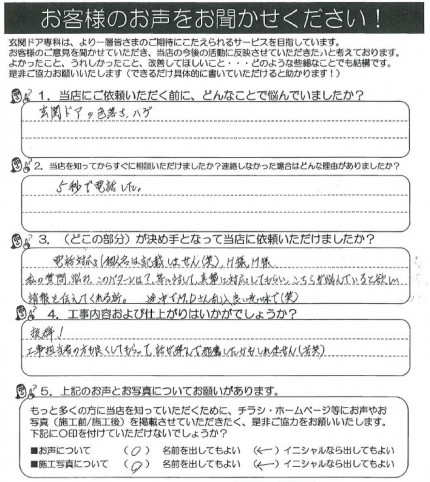 お客様のお声をお聞かせください！
玄関ドア専科は、より一層皆さまのご期待にこたえられるサービスを目指しています。
お客様のご意見を聞かせていただき、当店の今後の活動に反映させていただきたいと考えております。
よかったこと、うれしかったこと、改善してほしいこと・・・どのような些細なことでも結構です。
是非ご協力お願いいたします（できるだけ具体的に書いていただけると助かります！）
１．当店にご依頼いただく前に、どんなことで悩んでいましたか？
玄関ドアの色落ち、ハゲ
2．当店を知ってからすぐに相談いただけましたか？連絡しなかった場合はどんな理由がありましたか？
５秒で電話した。
３．（どこの部分）が決め手となって当店に依頼いただけましたか？
電話対応（個人名は記載しません（笑）、H様、H様
私の質問、 このパターンは？等に対して、真摯に対応してもらい、こちらが悩んでいると欲しい
情報を伝えてくれる所。 M、Dさん 良い意味で（笑）
４．工事内容および仕上がりはいかがでしょうか？
抜群！
工事担当者の方も良くしてもらって、話が弾んで邪魔したかもしれません（苦笑）
５．上記のお声とお写真についてお願いがあります。
もっと多くの方に当店を知っていただくために、チラシ・ホームページ等にお声やお
写真（施工前/施工後）を掲載させていただきたく、是非ご協力をお願いいたします。
下記に〇印を付けていただけないでしょうか？
■お声について （○） 名前を出してもよい （←）イニシャルなら出してもよい
■施工写真について （○） 名前を出してもよい （←）イニシャルなら出してもよい